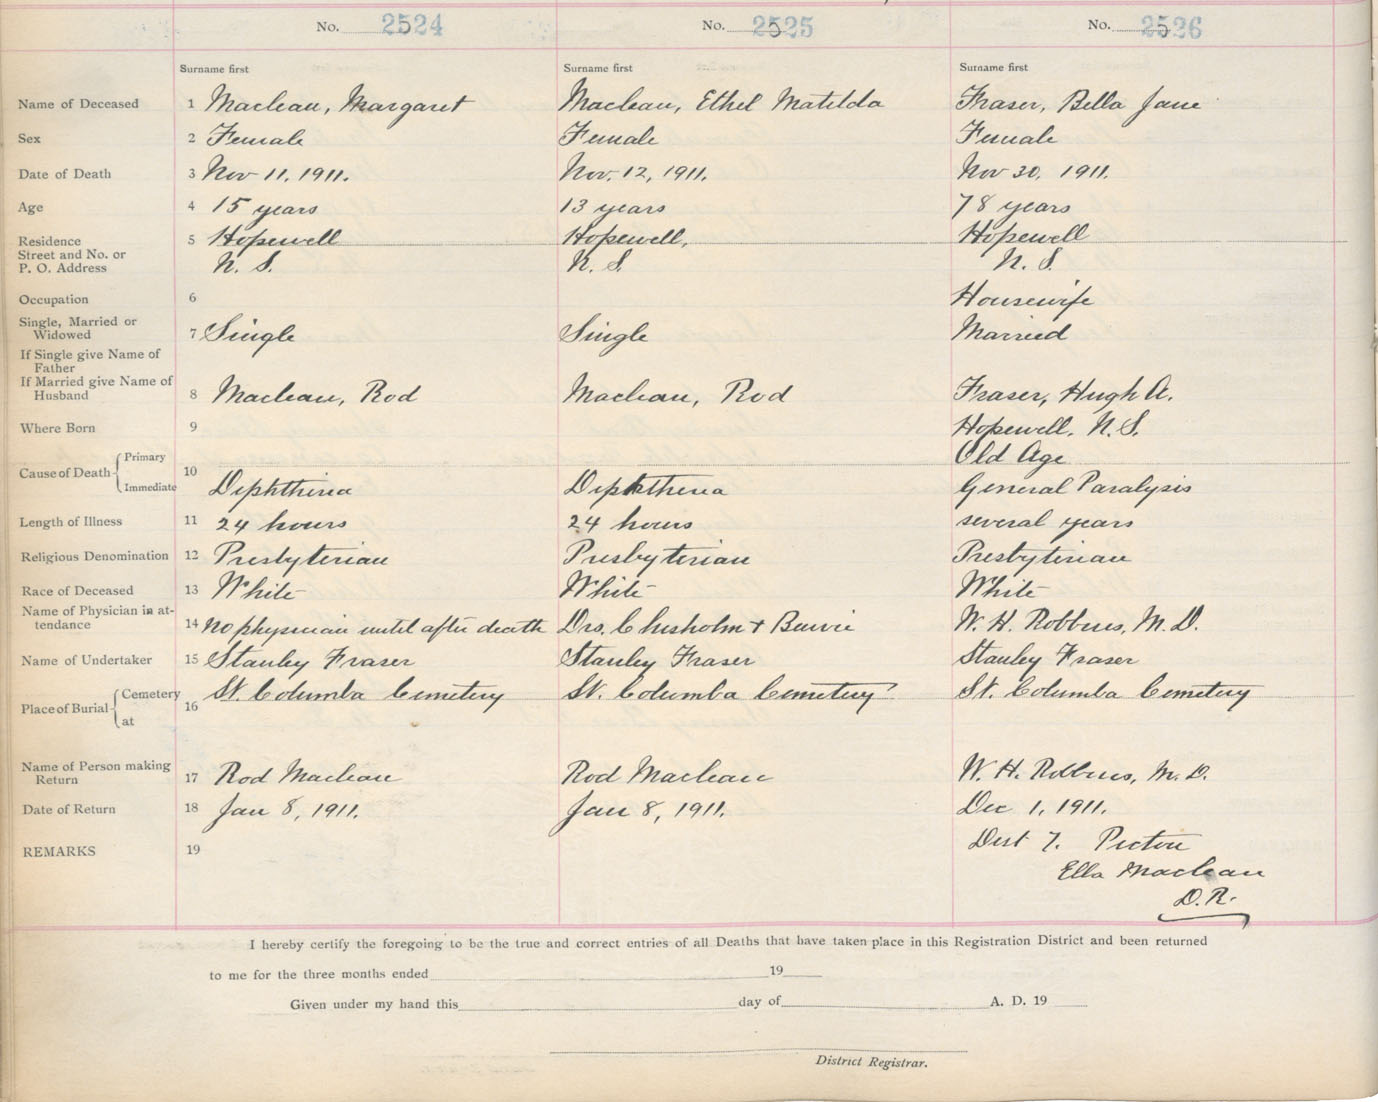 No. 2524 No. 2525 No. 2526
Surname first Surname first Surname first
Name of Deceased 1 Maclean, Margaret Maclean, Ethel Matilda Fraser, Bella Jane
Sex 2 Female Female Female
Date of Death 3 Nov 11. 1911. Nov. 12, 1911. Nov 30, 1911.
Age 4 15 years 13 years 78 years
Residence 5 Hopewell Hopewell, Hopewell
Street and No. or
P. O. Address N. S. N. S. N. S.
Occupation 6 Housewife
Single, Married or
Widowed 7 Single Single Married
If Single give Name of
Father
If Married give Name of
Husband 8 Maclean, Rod Maclean, Rod Fraser, Hugh A.
Where Born 9 Hopewell, N. S.
Primary Old Age
Cause of Death 10
Immediate Diphtheria Diphtheria General Paralysis
Length of Illness 11 24 hours 24 hours several years
Religious Denomination 12 Presbyterian Presbyterian Presbyterian
Race of Deceased 13 White White White
Name of Physician in at-
tendance 14 no physician until after death Drs. Chisholm + W. H. Robbins, M. D.
Name of Undertaker 15 Stanley Fraser Stanley Fraser Stanley Fraser
Cemetery St. Columba Cemetery St. Columba Cemetery St. Columba Cemetery
Place of Burial 16
at
Name of Person making
Return 17 Rod Maclean Rod Maclean W. H. Robbins, M. D.
Date of Return 18 Jan 8, 1911. Jan 8, 1911. Dec 1, 1911.
Dist 7. Pictou
REMARKS 19
Ella Maclean
D. R.
I hereby certify the foregoing to be the true and correct entries of all Deaths that have taken place in this Registration District and been returned
to me for the three months ended 19
Given under my hand this day of A. D. 19
District Registrar.